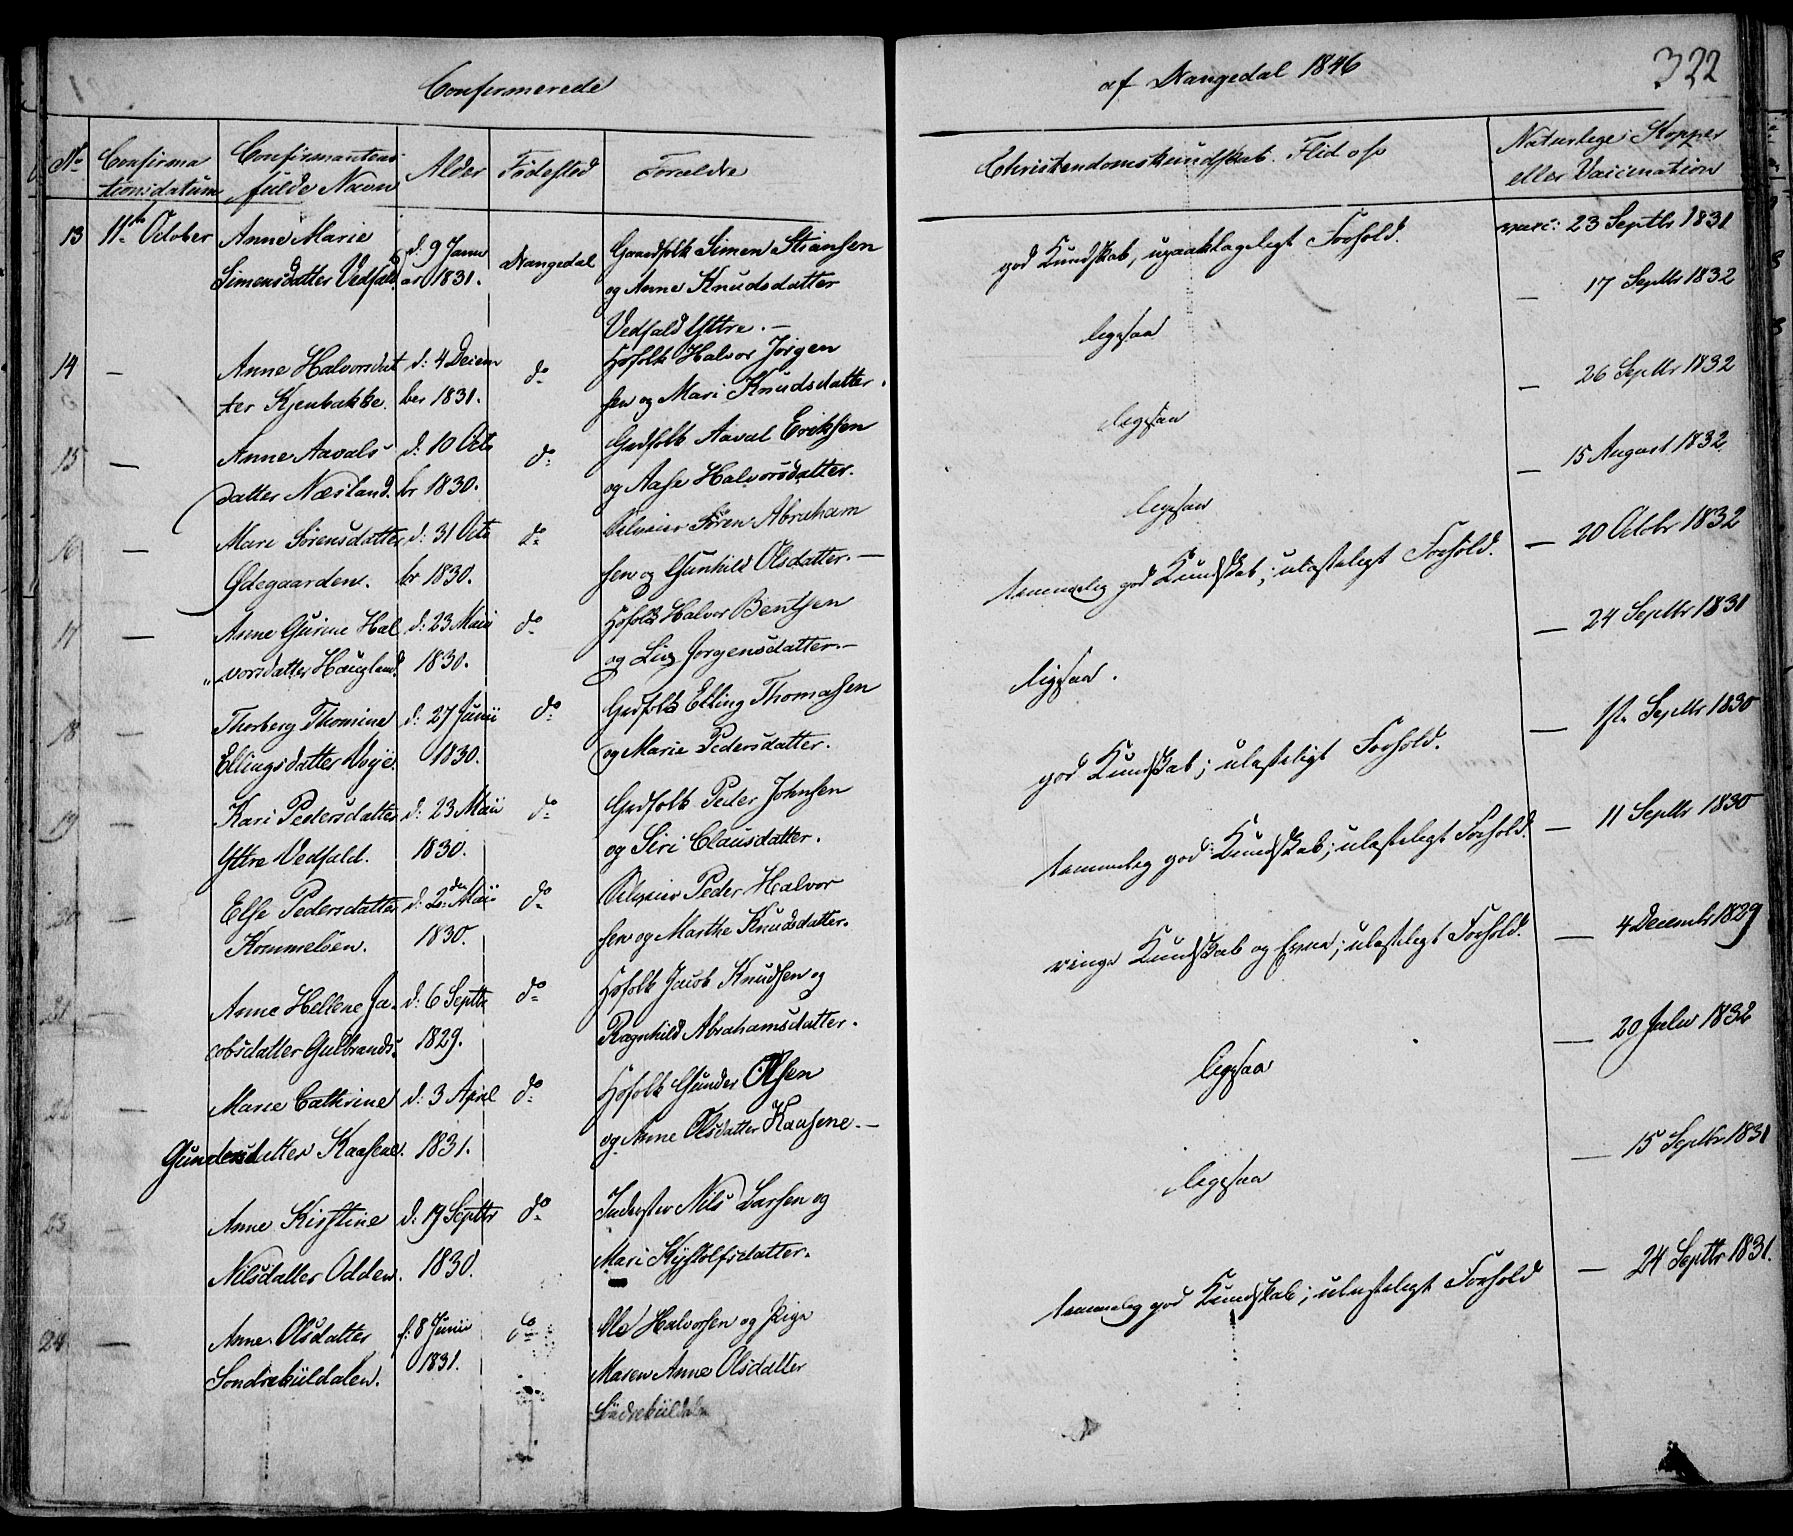 Confirmerede
af Nangedal 1846
322
No
Confirma
tionsdatum
Confirmantens
fulde Navn
Alder
Fødested
Forældre
Christendomskundskab. Flid o.s.
Naturlige Kopper
eller Vaccination
13 11te October Anne Marie
Simensdatter Vedfald
d. 9 Janu
ar 1831.
Nangedal
Gaardfolk Simen Stiansen
og Anne Knudsdatter
Vedfald Yttre. —
god Kundskab, upaaklageligt Forhold.
vacc: 23 Septbr 1831
14 — Anne Halvorsdat
ter Kjenbakke.
d: 4 Decem
ber 1831.
do
Hsfolk Halvor Jørgen
sen og Mari Knudsdatter.
ligesaa
— 17 Septbr 1832
15 — Anne Aavals
datter Næsland.
d: 10 Octo
br 1830.
do
Grdfolk Aaval Eriksen
og Aase Halvorsdatter.
ligesaa
— 26 Septbr 1832
16 — Mari Sørensdatter
Ødegaarden.
d: 31 Octo
br 1830.
do
Søren Abraham
sen og Gunhild Olsdatter. —
ligesaa
— 15 August 1832
17 — Anne Gurine Hal
vorsdatter Haugland.
d: 23 Maii
1830.
do
Hsfolk Halvor Bentsen
og Liv Jørgensdatter. —
temmelig god Kundskab; ulasteligt Forhold.
— 20 Octobr 1832
18 — Thorberg Thomine
Ellingsdatter Voje.
d: 27 Junii
1830.
do
Grdfolk Elling Thomasen
og Marie Pedersdatter.
ligesaa.
— 24 Septbr 1831
19 — Kari Pedersdatter
Yttre Vedfald.
d: 23 Maii
1830.
do
Grdfolk Peder Johnsen
og Siri Clausdatter.
god Kundskab; ulasteligt Forhold.
— 1ste Septbr 1830
20 — Else Pedersdatter
Kommelöen.
d: 2den Maii
1830.
do
Peder Halvor
sen og Marthe Knudsdatter.
temmelig god Kundskab; ulasteligt Forhold.
— 11 Septbr 1830
21 — Anne Hellene Ja-
cobsdatter Gulbrands.
d: 6 Septbr
1829.
do
Hsfolk Jacob Knudsen og
Ragnhild Abrahamsdatter.
ringe Kundskab og Evne; ulasteligt Forhold.
— 4 Decembr 1829
22 — Marie Cathrine
Gundersdatter Kaasene.
d: 3 April
1831.
do
Hsfolk Gunder Olsen
og Anne Olsdatter Kaasene. —
ligesaa
— 20 Julii 1832
23 — Anne Kirstine
Nilsdatter Odden.
d: 19 Septbr
1830.
do
Inderster Nils Larsen og
Mari Kjøstolfsdatter.
ligesaa
— 15 Septbr 1831
24 — Anne Olsdatter
Söndreküldalen.
f: 8 Junii
1831.
do
Ole Halvorsen og Pige
Maren Anne Olsdatter
Söndreküldalen
temmelig god Kundskab; ulasteligt Forhold
— 24 Septbr 1831.